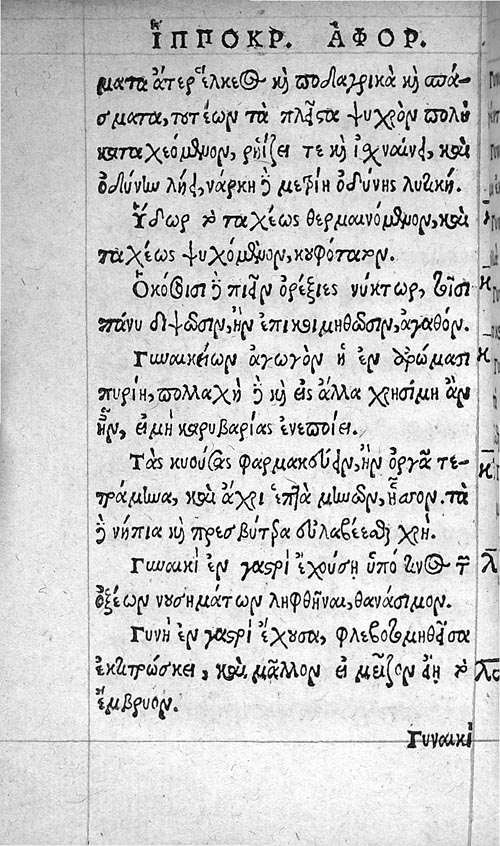 ἹΠΠΟΚΡ. ἈΦΟΡ.
ματα ἄτερ ἕλκεος καὶ ποδαγρικὰ καὶ σπά-
σματα, τουτέων τὰ πλεῖστα ψυχρὸν πολὺ
καταχεόμενον, ῥηΐζει τε καὶ ἰχναίνει, καὶ
ὀδύνην λύει, νάρκη δὲ μετρίη ὀδύνης λυτική.
Ὕδωρ τὸ ταχέως θερμαινόμενον, καὶ
ταχέως ψυχόμενον, κουφότατον.
Ὁκόσοισι δὲ πιεῖν ὀρέξιες νύκτωρ, τοῖσι
πάνυ διψῶσιν, ἢν ἐπικοιμηθῶσιν, ἀγαθόν.
Γυναικείων ἀγωγὸν ἡ ἐν ἀρώμασι
πυρίη, πολλαχῆ δὲ καὶ εἰς ἄλλα χρησίμη ἂν
ἦν, εἰ μὴ καρυβαρίας ἐνεποίει.
Τὰς κυούσας φαρμακεύειν, ἢν ὀργᾷ τε-
τράμηνα, καὶ ἄχρι ἑπτὰ μηνῶν, ἧσσον. τὰ
δὲ νήπια καὶ πρεσβύτερα εὐλαβέεσθαι χρή.
Γυναικὶ ἐν γαστρὶ ἐχούσῃ ὑπό τινος τῶν
ὀξέων νουσημάτων ληφθῆναι, θανάσιμον.
Γυνὴ ἐν γαστρὶ ἔχουσα, φλεβοτομηθεῖσα
ἐκτιτρώσκει, καὶ μᾶλλον εἰ μεῖζον εἴη τὸ
ἔμβρυον.
Γυναικὶ